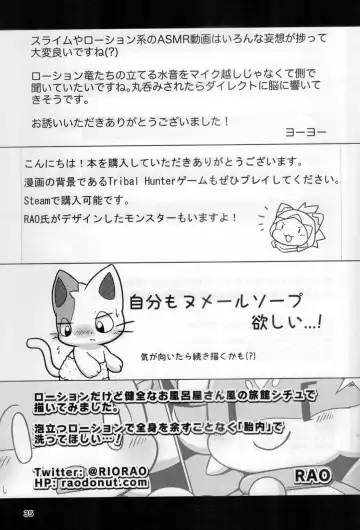 スライムやローション系のASMR動画はいろんな妄想が捗って
大変良いですね(?)
ローション竜たちの立てる水音をマイク越しじゃなくて側で
聞いていたいですね。丸呑みされたらダイレクトに脳に響いて
きそうです。
お誘いいただきありがとうございました!
ヨーヨー
こんにちは!本を購入していただきありがとうございます。
漫画の背景であるTribal Hunterゲームもぜひプレイしてください。
Steamで購入可能です。
RAO氏がデザインしたモンスターもいますよ!
自分もヌメールソープ
欲しい…!
気が向いたら続き描くかも(?)
ローションだけど健全なお風呂屋さん風の旅館シチュで
描いてみました。
泡立つローションで全身を余すことなく「胎内」で
洗ってほしい…!
Twitter: @RIORAO
HP: raodonut.com
RAO
35